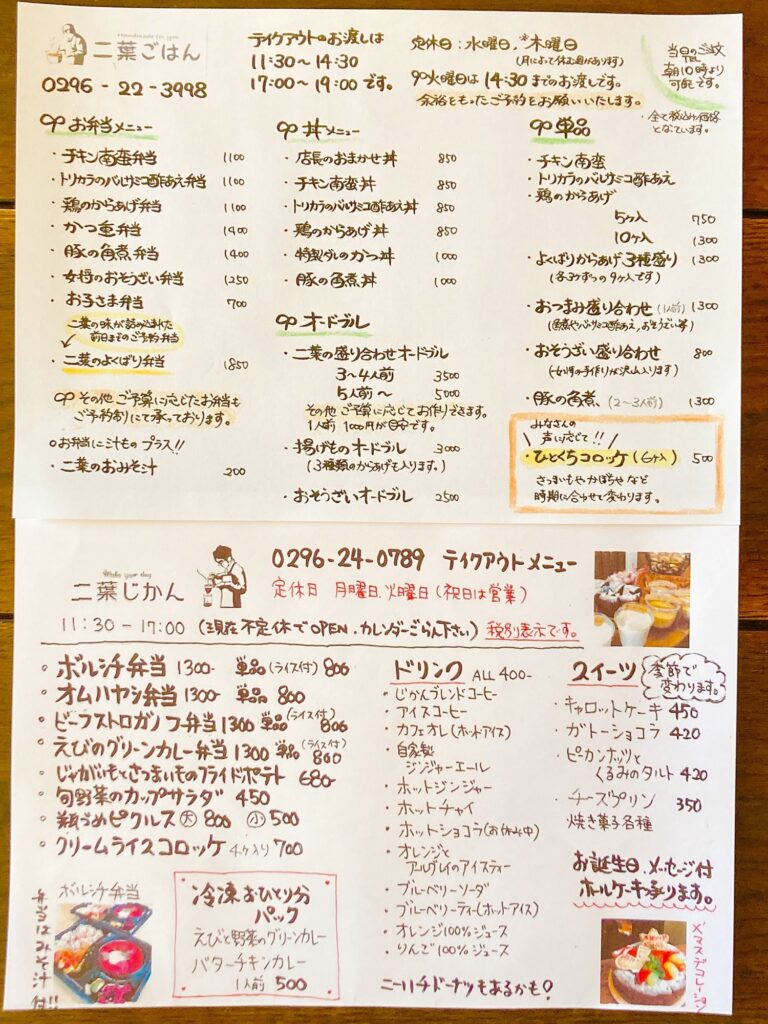 Handmade for you
二葉ごはん
0296-22-3998
テイクアウトのお渡しは
11:30~14:30
17:00~19:00です。
定休日:水曜日,*木曜日
(月によって休む週があります)
火曜日は14:30までのお渡しです。
余裕をもったご予約をお願いいたします。
当日のご注文
TEL
朝10時より
可能です。
・全て税込み価格
となっています。
お弁当メニュー
・チキン南蛮弁当 1100
・トリカラのバルサミコ酢あえ弁当 1100
・鶏のからあげ弁当 1100
・かつ重弁当 1400
・豚の角煮弁当 1400
・女将のおそうざい弁当 1250
・お子さま弁当 700
二葉の味が詰め込まれた
前日までのご予約弁当
・二葉のよくばり弁当 1850
その他ご予算に応じたお弁当も
ご予約制にて承っております。
○お弁当に汁もの プラス!!
・二葉のおみそ汁 200
丼メニュー
・店長のおまかせ丼 850
・チキン南蛮丼 850
・トリカラのバルサミコ酢あえ丼 850
・鶏のからあげ丼 850
・特製ダレのかつ丼 1000
・豚の角煮丼 1000
オードブル
・二葉の盛り合わせオードブル
3~4人前 3500
5人前~ 5000
その他ご予算に応じてお作りできます。
1人前 1000円が目安です。
・揚げものオードブル 3000
(3種類のからあげも入ります。)
・おそうざいオードブル 2500
単品
・チキン南蛮
・トリカラのバルサミコ酢あえ
・鶏のからあげ
5ヶ入 750
10ヶ入 1300
・よくばりからあげ3種盛り 1300
(各3ケずつの9ヶ入です)
・おつまみ盛り合わせ(1人前) 1300
・おそうざい盛り合わせ 800
(女将の手作りが沢山入ります)
・豚の角煮、(2~3人前) 1300
みなさんの
声に応じて!!
・ひとくちコロッケ(6ヶ入) 500
さつまいもやかぼちゃなど
時期に合わせて変わります。
Make your day
二葉じかん
0296-24-0789 テイクアウトメニュー
定休日 月曜日.火曜日(祝日は営業)
11:30-17:00(現在不定休でOPEN.カレンダーごらん下さい)税別表示です。
○ボルシチ弁当 1300- 単品(ライス付)800
○オムハヤシ弁当 1300- 単品 800
○ビーフストロガノフ弁当 1300 単品(ライス付)800
○えびのグリーンカレー弁当 1300 単品(ライス付)800
○じゃがいもとさつまいものフライドポテト 680-
○旬野菜のカップサラダ 450
○瓶づめピクルス 大 800 小 500
○クリームライスコロッケ 4ヶ入り 700
ボルシチ弁当
弁当はみそ汁付!!
冷凍おひとり分
パック
えびと野菜のグリーンカレー
バターチキンカレー
1人前 500
ドリンク ALL 400-
・じかんブレンドコーヒー
・アイスコーヒー
・カフェオレ(ホットアイス)
・自家製
ジンジャーエール
・ホットジンジャー
・ホットチャイ
・ホットショコラ(お休み中)
・オレンジと
アールグレイのアイスティー
・ブルーベリーソーダ
・ブルーベリーティー(ホットアイス)
・オレンジ100%ジュース
・りんご100%ジュース
ニーハチドーナツもあるかも?
スイーツ
季節で
変わります。
・キャロットケーキ 450
・ガトーショコラ 420
・ピーカンナッツと
くるみのタルト 420
・チーズプリン 350
焼き菓子各種
お誕生日.メッセージ付
ホールケーキ承ります。
X'マスデコレーション